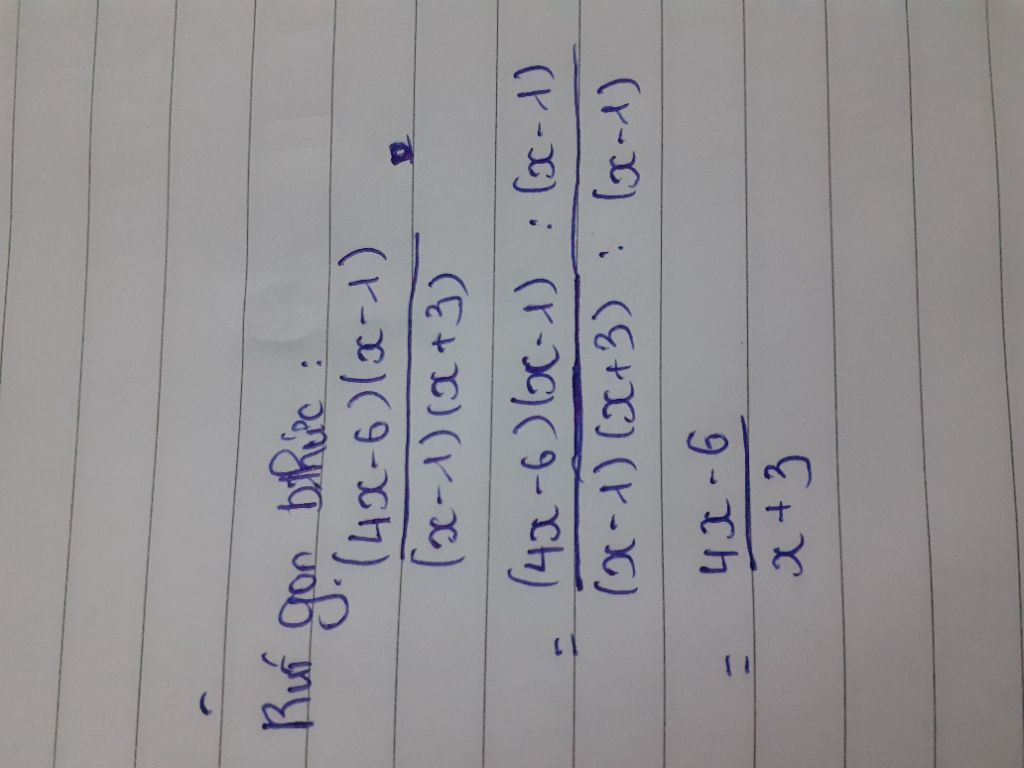 Rút gọn bthức :
(4x-6)(x-1)
(x-1)(x+3)
= (4x-6)(x-1) : (x-1)
(x-1)(x+3) : (x-1)
= 4x-6
x+3